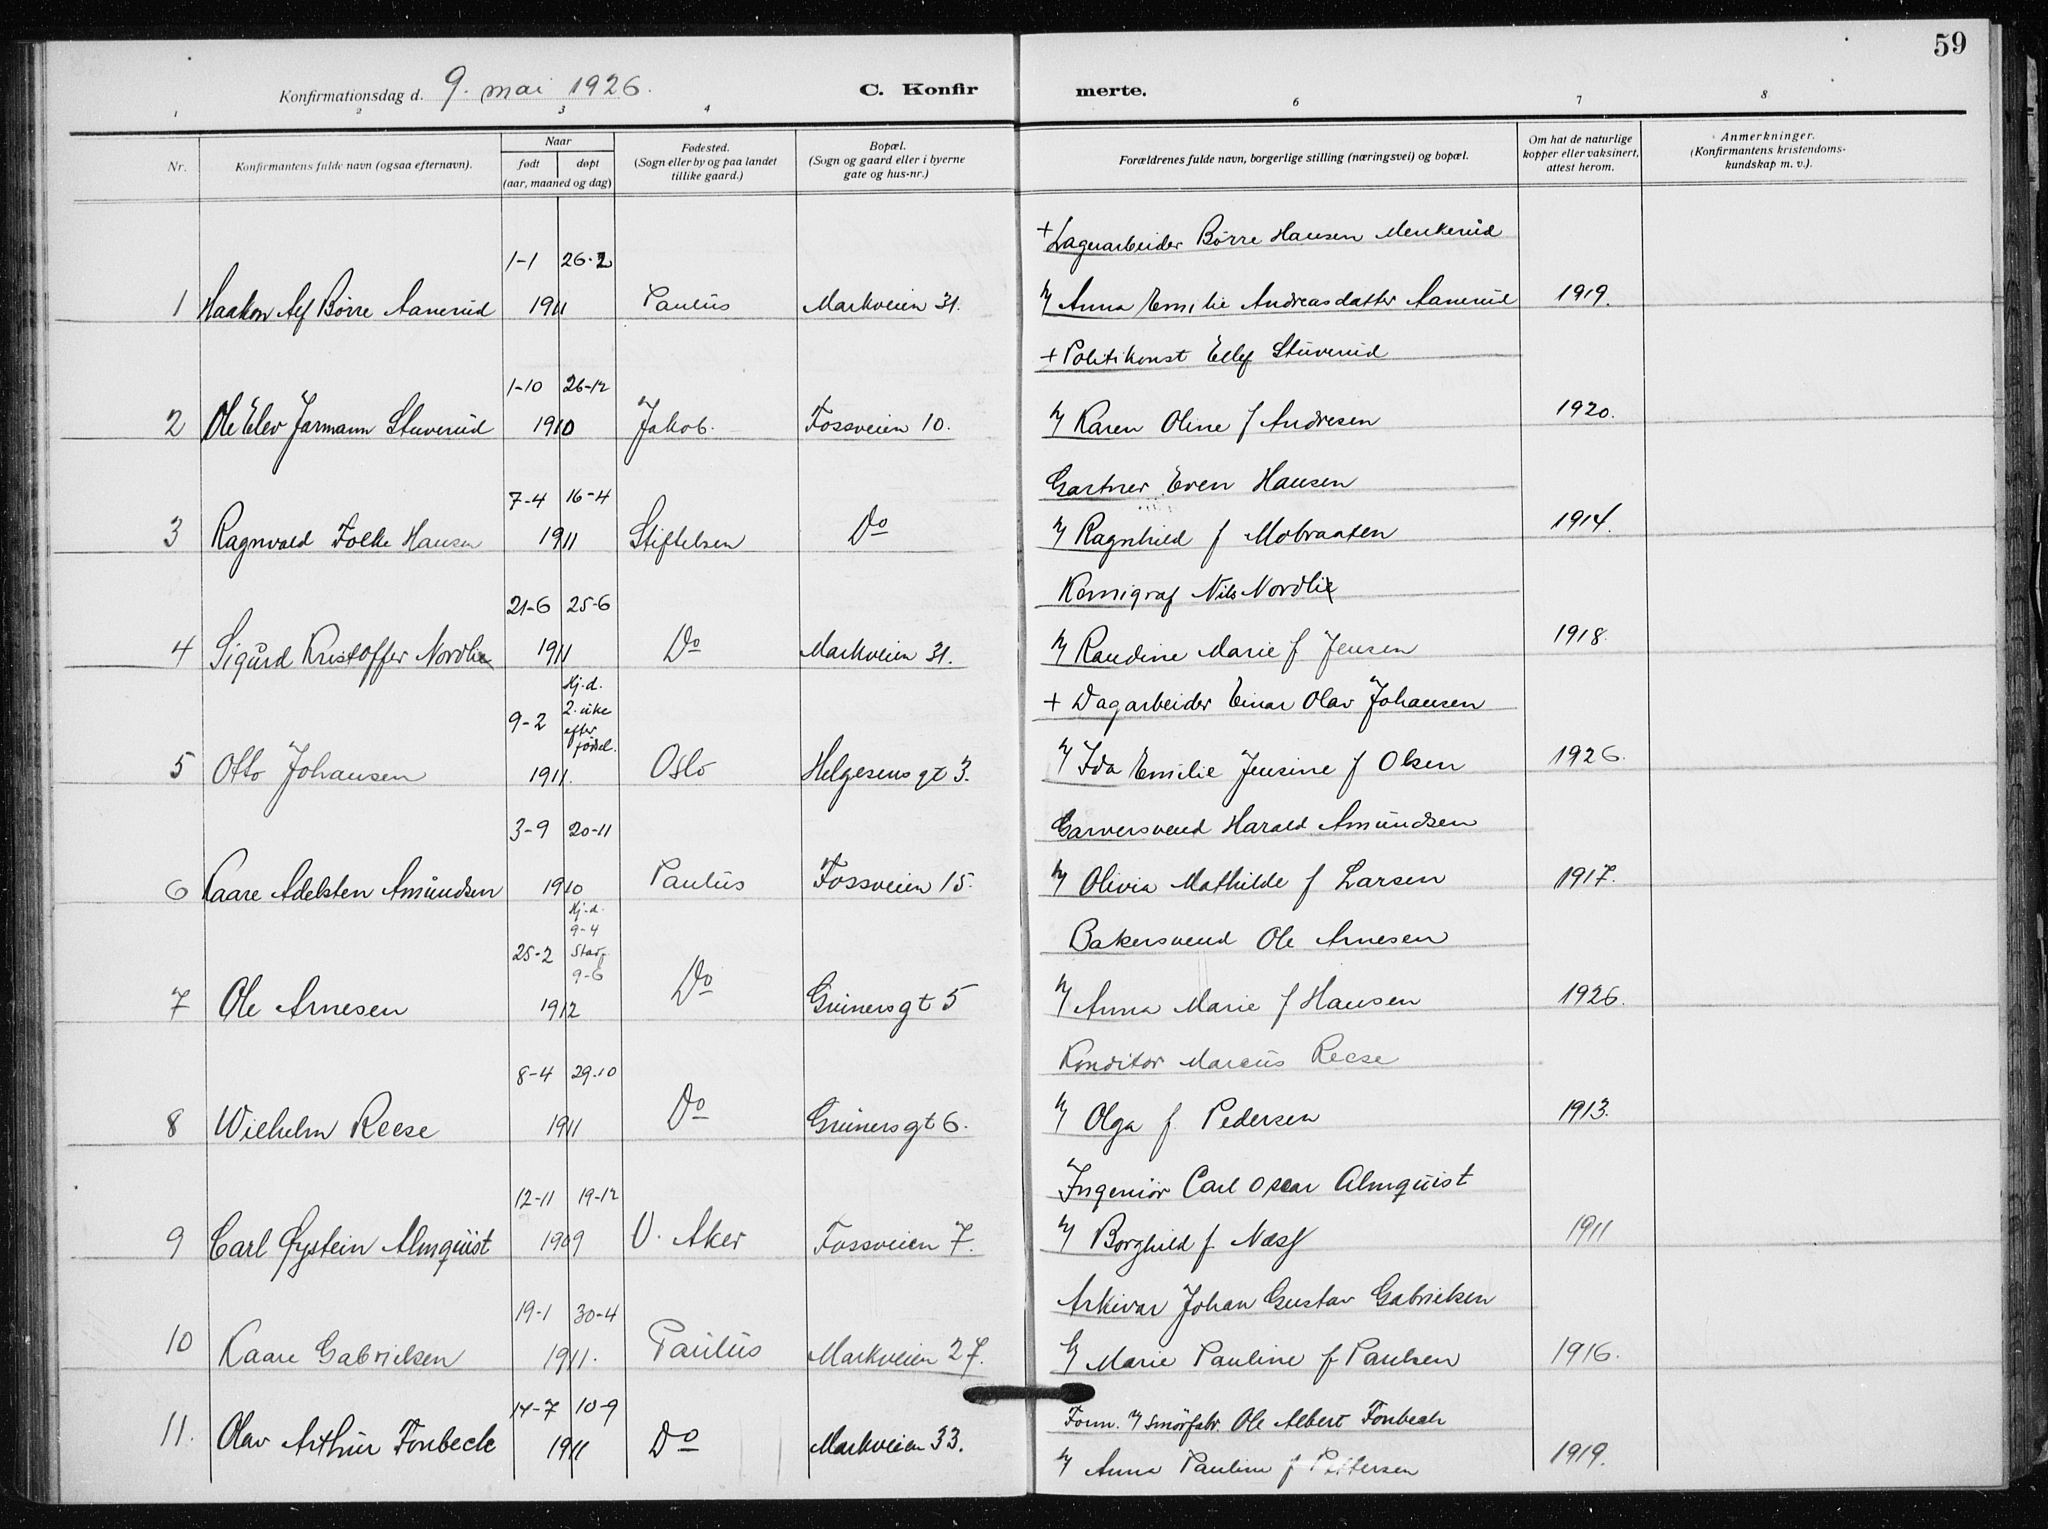 59
Konfirmationsdag d. 9. mai 1926. C. Konfirmerte.
1 2 3 4 6 7 8
Nr. Konfirmantens fulde navn (ogsaa efternavn). Naar født døpt (aar, maaned og dag) Fødested. (Sogn eller by og paa landet tillike gaard.) Bopæl. (Sogn og gaard eller i byerne gate og hus-nr.) Forældrenes fulde navn, borgerlige stilling (næringsvei) og bopæl. Om hat de naturlige kopper eller vaksinert, attest herom. Anmerkninger. (Konfirmantens kristendomskundskap m. v.).
+ Lagerarbeider Børre Hansen Menkerud
1-1 26-2
1 Haakon Alf Børre Aanerud 1911 Paulus Markveien 31. & Anna Emilie Andreasdatter Aanerud 1919.
+ Politikonst Ellef Stuverud
1-10 26-12
2 Ole Elev Jarmann Stuverud 1910 Jakob. Fossveien 10. & Karen Oline f Andresen 1920.
Gartner Even Hansen
7-4 16-4
3 Ragnvald Folke Hansen 1911 Stiftelsen Do & Ragnhild f Mobraaten 1914.
Kemigraf Nils Nordlie
21-6 25-6
4 Sigurd Kristoffer Nordlie 1911 Do Markveien 31. & Randine Marie f Jensen 1918.
+ Dagarbeider Einar Olav Johansen
9-2 Hj.d. 2. uke efter fødsel.
5 Otto Johansen 1911. Oslo Helgesens gt 3. & Ida Emilie Jensine f Olsen 1926.
3-9 20-11 Garversvend Harald Amundsen
6 Kaare Adelsten Amundsen 1910 Paulus Fossveien 15. & Olivia Mathilde f Larsen 1917.
25-2 Hj.d. 9-4 Stadf 9-6 Bakersvend Ole Arnesen
7 Ole Arnesen 1912 Do Grünersgt 5 & Anna Marie f Hansen 1926.
8-4 29.10 Konditor Marcus Reese
8 Wilhelm Reese 1911 Do Grünersgt 6. & Olga f. Pedersen 1913.
12-11 19-12 Ingeniør Carl Oscar Almquist
9 Carl Øystein Almquist 1909 V. Aker Fossveien 7. & Borghild f. Næss 1911
19-1 30-4 Arkivar Johan Gustav Gabrielsen
10 Kaare Gabrielsen 1911. Paulus Markveien 27. & Marie Pauline f Paulsen 1916.
14-7 10-9 Form. & smørfabr. Ole Albert Fonbech
11. Olav Arthur Fonbeck 1911 Do Markveien 33. & Anna Pauline f Pettersen 1919.